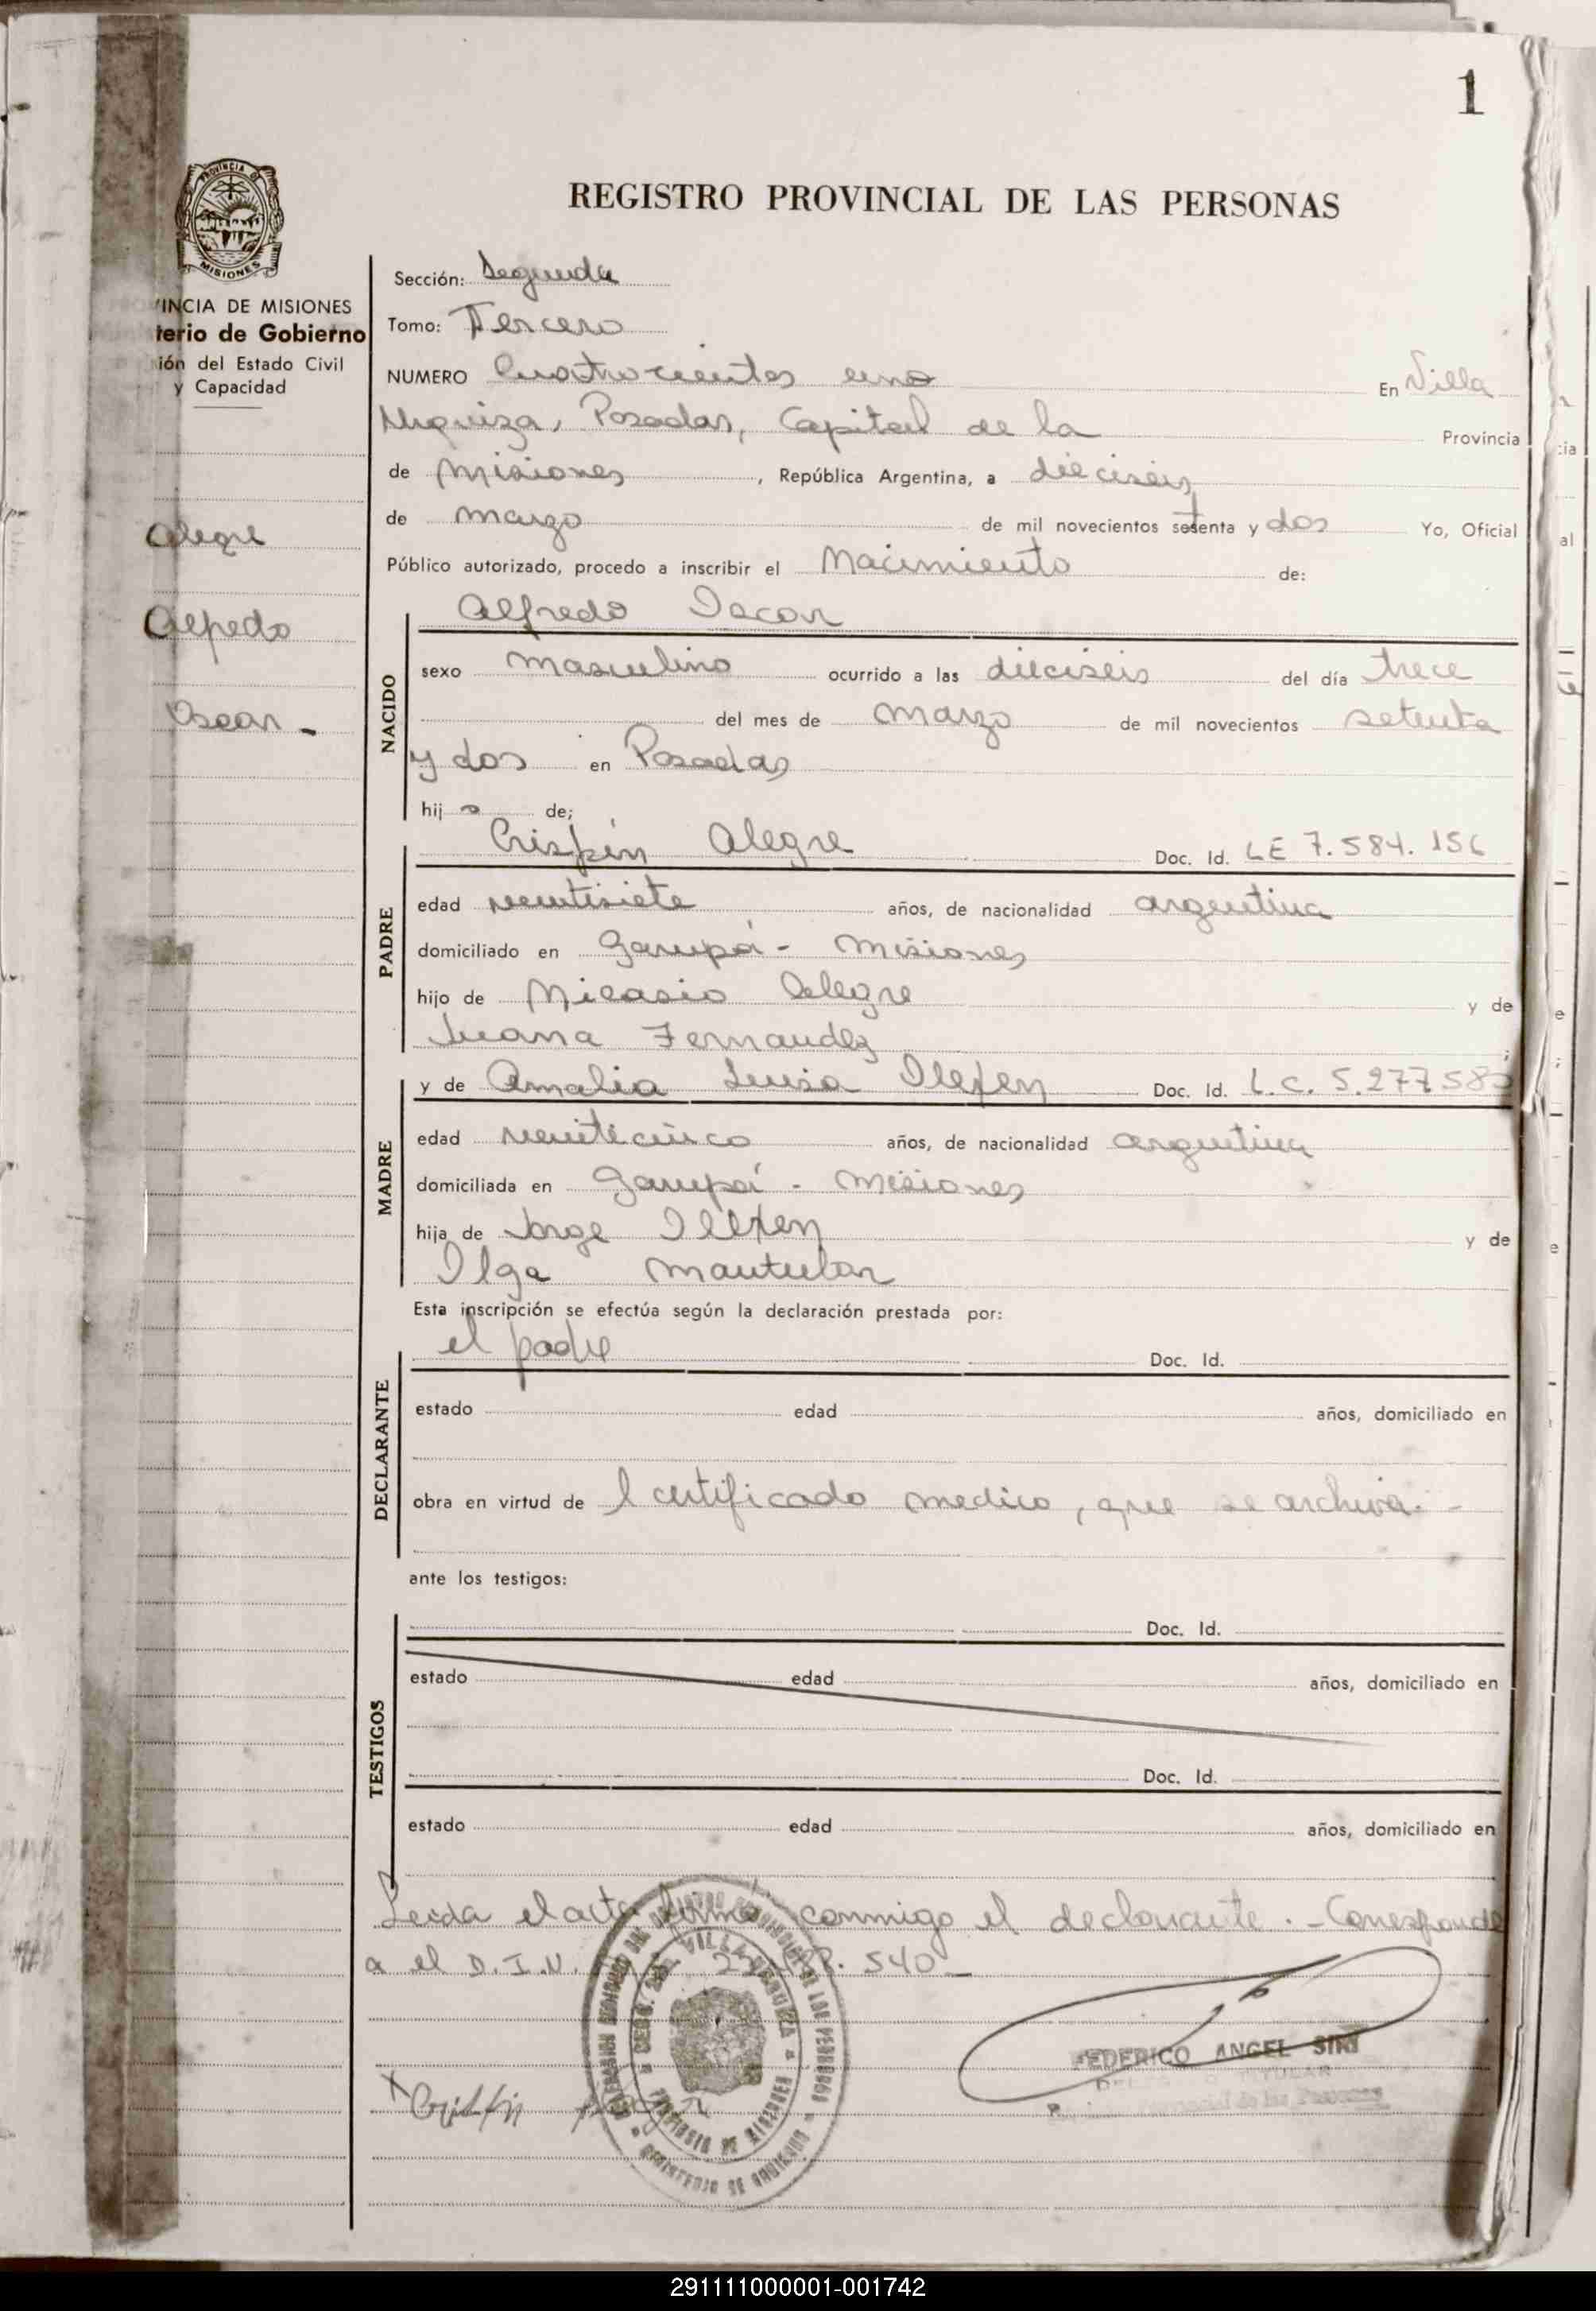 1
REGISTRO PROVINCIAL DE LAS PERSONAS
PROVINCIA DE
MISIONES
VINCIA DE MISIONES
terio de Gobierno
ión del Estado Civil
y Capacidad
Alegre
Alfredo
Oscar -
Sección: Segunda
Tomo: Tercero
NUMERO Cuatrocientos uno En Villa
Urquiza, Posadas, Capital de la Provincia
de Misiones, República Argentina, a dieciséis
de marzo de mil novecientos setenta y dos Yo, Oficial
Público autorizado, procedo a inscribir el Nacimiento de:
NACIDO
Alfredo Oscar
sexo masculino ocurrido a las dieciseis del día trece
del mes de marzo de mil novecientos setenta
y dos en Posadas
hij o de;
PADRE
Crispín Alegre Doc. Id. LE 7.584.156
edad veintisiete años, de nacionalidad argentina
domiciliado en Garupá - Misiones
hijo de Nicasio Alegre y de
Juana Fernandez
MADRE
y de Amalia Luisa Doc. Id. L.C. 5.277.58
edad veinticinco años, de nacionalidad argentina
domiciliada en Garupá - Misiones
hija de Jorge y de
Olga
Esta inscripción se efectúa según la declaración prestada por:
DECLARANTE
el padre Doc. Id.
estado edad años, domiciliado en
obra en virtud de l certificado medico, que se archiva.-
ante los testigos:
TESTIGOS
Doc. Id.
estado edad años, domiciliado en
Doc. Id.
estado edad años, domiciliado en
Leída el acta firma conmigo el declarante.- Corresponde
a el D.N.I. 540 -
FEDERICO ANGEL
TITULAR
291111000001-001742